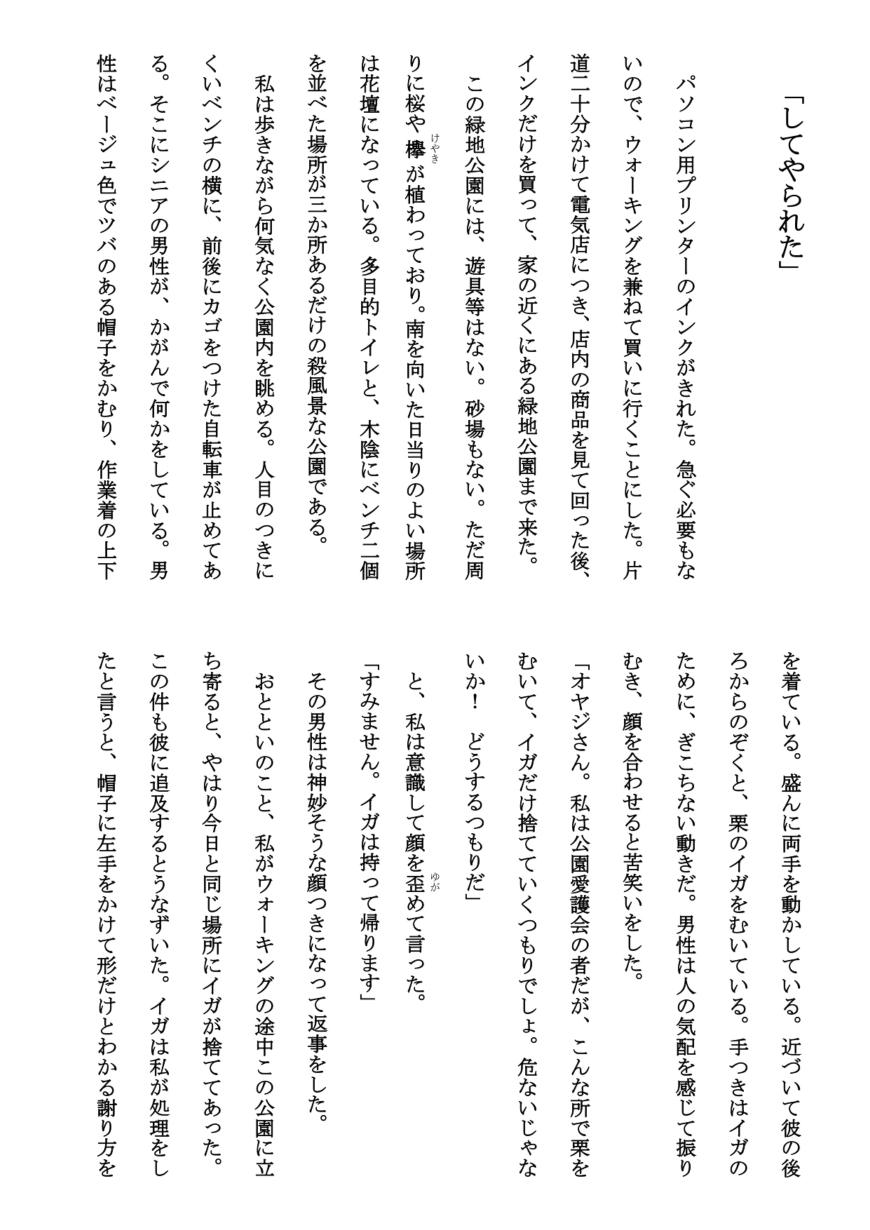 「してやられた」
パソコン用プリンターのインクがきれた。急ぐ必要もな
いので、ウォーキングを兼ねて買いに行くことにした。片
道二十分かけて電気店につき、店内の商品を見て回った後、
インクだけを買って、家の近くにある緑地公園まで来た。
この緑地公園には、遊具等はない。砂場もない。ただ周
りに桜や欅けやきが植わっており。南を向いた日当りのよい場所
は花壇になっている。多目的トイレと、木陰にベンチ二個
を並べた場所が三か所あるだけの殺風景な公園である。
私は歩きながら何気なく公園内を眺める。人目のつきに
くいベンチの横に、前後にカゴをつけた自転車が止めてあ
る。そこにシニアの男性が、かがんで何かをしている。男
性はベージュ色でツバのある帽子をかむり、作業着の上下
を着ている。盛んに両手を動かしている。近づいて彼の後
ろからのぞくと、栗のイガをむいている。手つきはイガの
ために、ぎこちない動きだ。男性は人の気配を感じて振り
むき、顔を合わせると苦笑いをした。
「オヤジさん。私は公園愛護会の者だが、こんな所で栗を
むいて、イガだけ捨てていくつもりでしょ。危ないじゃな
いか！　どうするつもりだ」
と、私は意識して顔を歪ゆがめて言った。
「すみません。イガは持って帰ります」
その男性は神妙そうな顔つきになって返事をした。
おとといのこと、私がウォーキングの途中この公園に立
ち寄ると、やはり今日と同じ場所にイガが捨ててあった。
この件も彼に追及するとうなずいた。イガは私が処理をし
たと言うと、帽子に左手をかけて形だけとわかる謝り方を